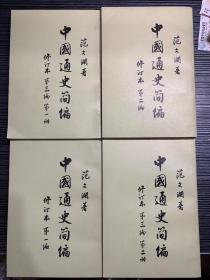 范文瀾著
中國通史簡編
修订本 第三编 第一册
范文瀾著
中國通史簡編
修订本 第二编
范文瀾著
中國通史簡編
修订本 第一编
范文瀾著
中國通史簡編
修订本 第三编 第二册